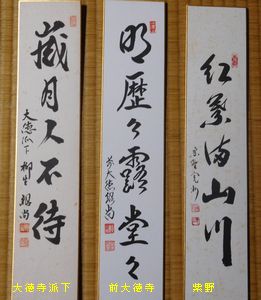 紅葉満山川
明歴々露堂々
前大徳紹尚
歳月人不待
大徳派下 柳生 紹尚
大徳寺派下
前大徳寺
紫野